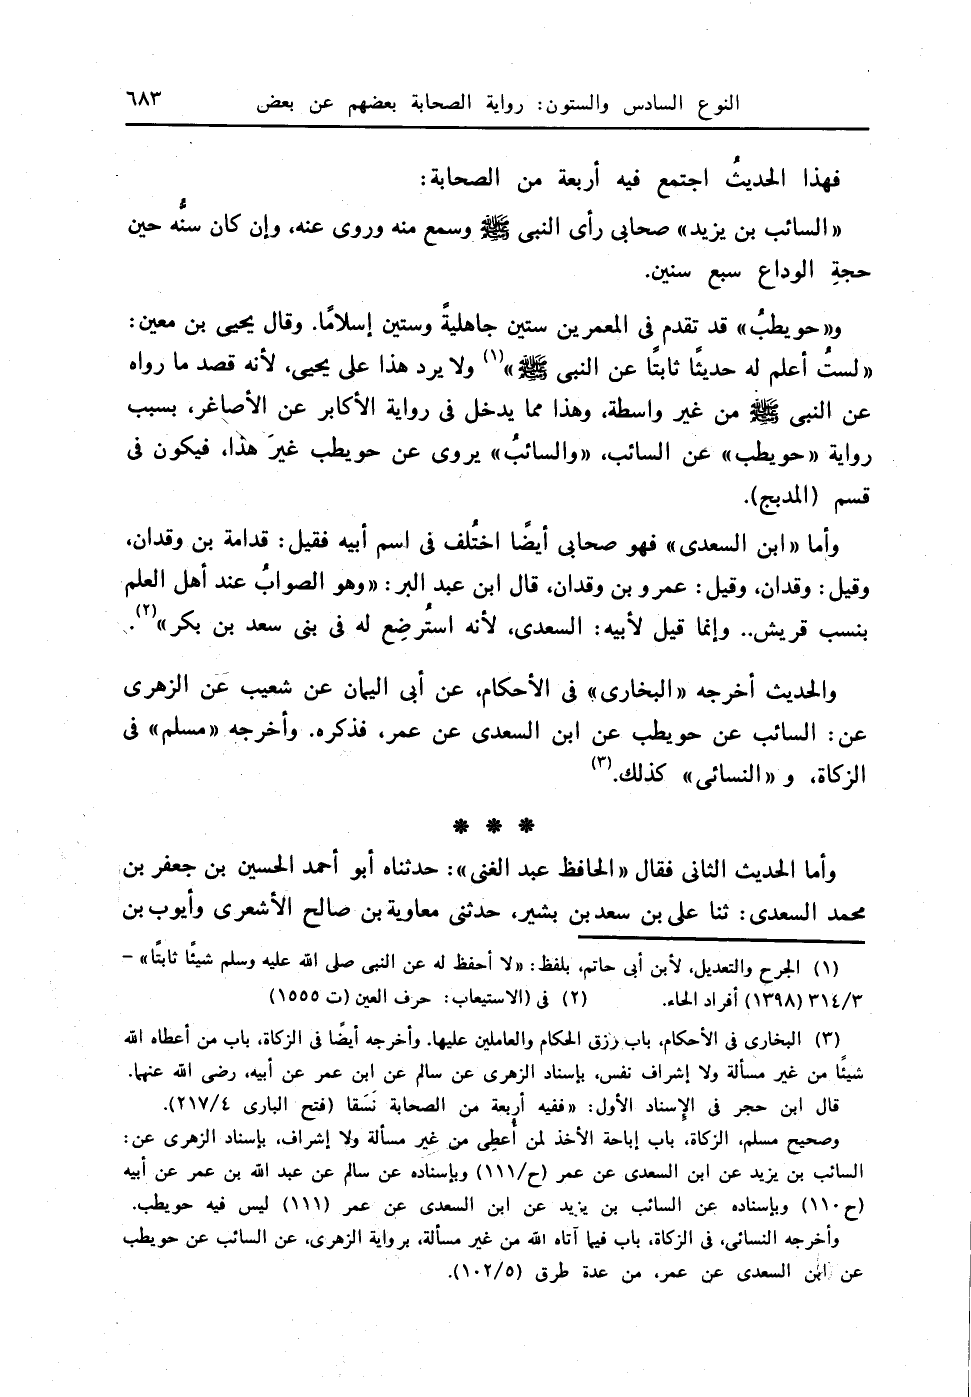 النوع السادس والستون: رواية الصحابة بعضهم عن بعض ٦٨٣
فهذا الحديثُ اجتمع فيه أربعة من الصحابة:
«السائب بن يزيد» صحابى رأى النبى ﷺ وسمع منه وروى عنه، وإن كان سنُّه حين
حجةِ الوداع سبع سنين.
و«حويطبُ» قد تقدم فى المعمرين ستين جاهليةً وستين إسلامًا. وقال يحيى بن معين:
«لستُ أعلم له حديثًا ثابتًا عن النبى ﷺ»(١) ولا يرد هذا على يحيى، لأنه قصد ما رواه
عن النبى ﷺ من غير واسطة، وهذا مما يدخل فى رواية الأكابر عن الأصاغر، بسبب
رواية «حويطب» عن السائب، «والسائبُ» يروى عن حويطب غيرَ هذا، فيكون فى
قسم (المدبج).
وأما «ابن السعدى» فهو صحابى أيضًا اختُلف فى اسم أبيه فقيل: قدامة بن وقدان،
وقيل: وقدان، وقيل: عمرو بن وقدان، قال ابن عبد البر: «وهو الصوابُ عند أهل العلم
بنسب قريش.. وإنما قيل لأبيه: السعدى، لأنه استُرضِع له فى بنى سعد بن بكر»(٢).
والحديث أخرجه «البخارى» فى الأحكام، عن أبى اليمان عن شعيب عَن الزهرى
عن: السائب عن حويطب عن ابن السعدى عن عمر، فذكره. وأخرجه «مسلم» فى
الزكاة، و «النسائى» كذلك.(٣)
* * *
وأما الحديث الثانى فقال «الحافظ عبد الغنى»: حدثناه أبو أحمد الحسين بن جعفر بن
محمد السعدى: ثنا على بن سعد بن بشير، حدثنى معاوية بن صالح الأشعرى وأيوب بن
(١) الجرح والتعديل، لأبن أبى حاتم، بلفظ: «لا أحفظ له عن النبى صلى الله عليه وسلم شيئًا ثابتًا» –
٣١٤/٣ (١٣٩٨) أفراد الحاء. (٢) فى (الاستيعاب: حرف العين (ت ١٥٥٥)
(٣) البخارى فى الأحكام، باب رزق الحكام والعاملين عليها. وأخرجه أيضًا فى الزكاة، باب من أعطاه الله
شيئًا من غير مسألة ولا إشراف نفس، بإسناد الزهرى عن سالم عن ابن عمر عن أبيه، رضى الله عنهما.
قال ابن حجر فى الإسناد الأول: «ففيه أربعة من الصحابة نَسَقا (فتح البارى ٢١٧/٤).
وصحيح مسلم، الزكاة، باب إباحة الأخذ لمن أُعطِى من غير مسألة ولا إشراف، بإسناد الزهرى عن:
السائب بن يزيد عن ابن السعدى عن عمر (ح/١١١) وبإسناده عن سالم عن عبد الله بن عمر عن أبيه
(ح١١٠) وبإسناده عن السائب بن يزيد عن ابن السعدى عن عمر (١١١) ليس فيه حويطب.
وأخرجه النسائى، فى الزكاة، باب فيما آتاه الله من غير مسألة، برواية الزهرى، عن السائب عن حويطب
عن ابن السعدى عن عمر، من عدة طرق (١٠٢/٥).